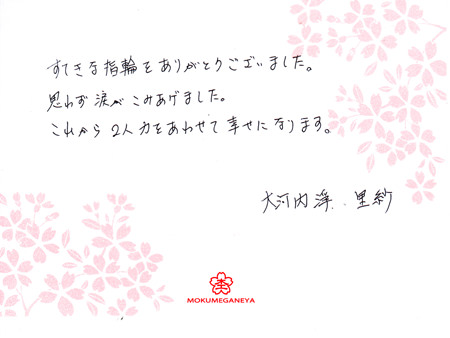 すてきな指輪をありがとうございました。
思わず涙がこみあげました。
これから2人力をあわせて幸せになります。
大河内淳・里紗
MOKUMEGANEYA